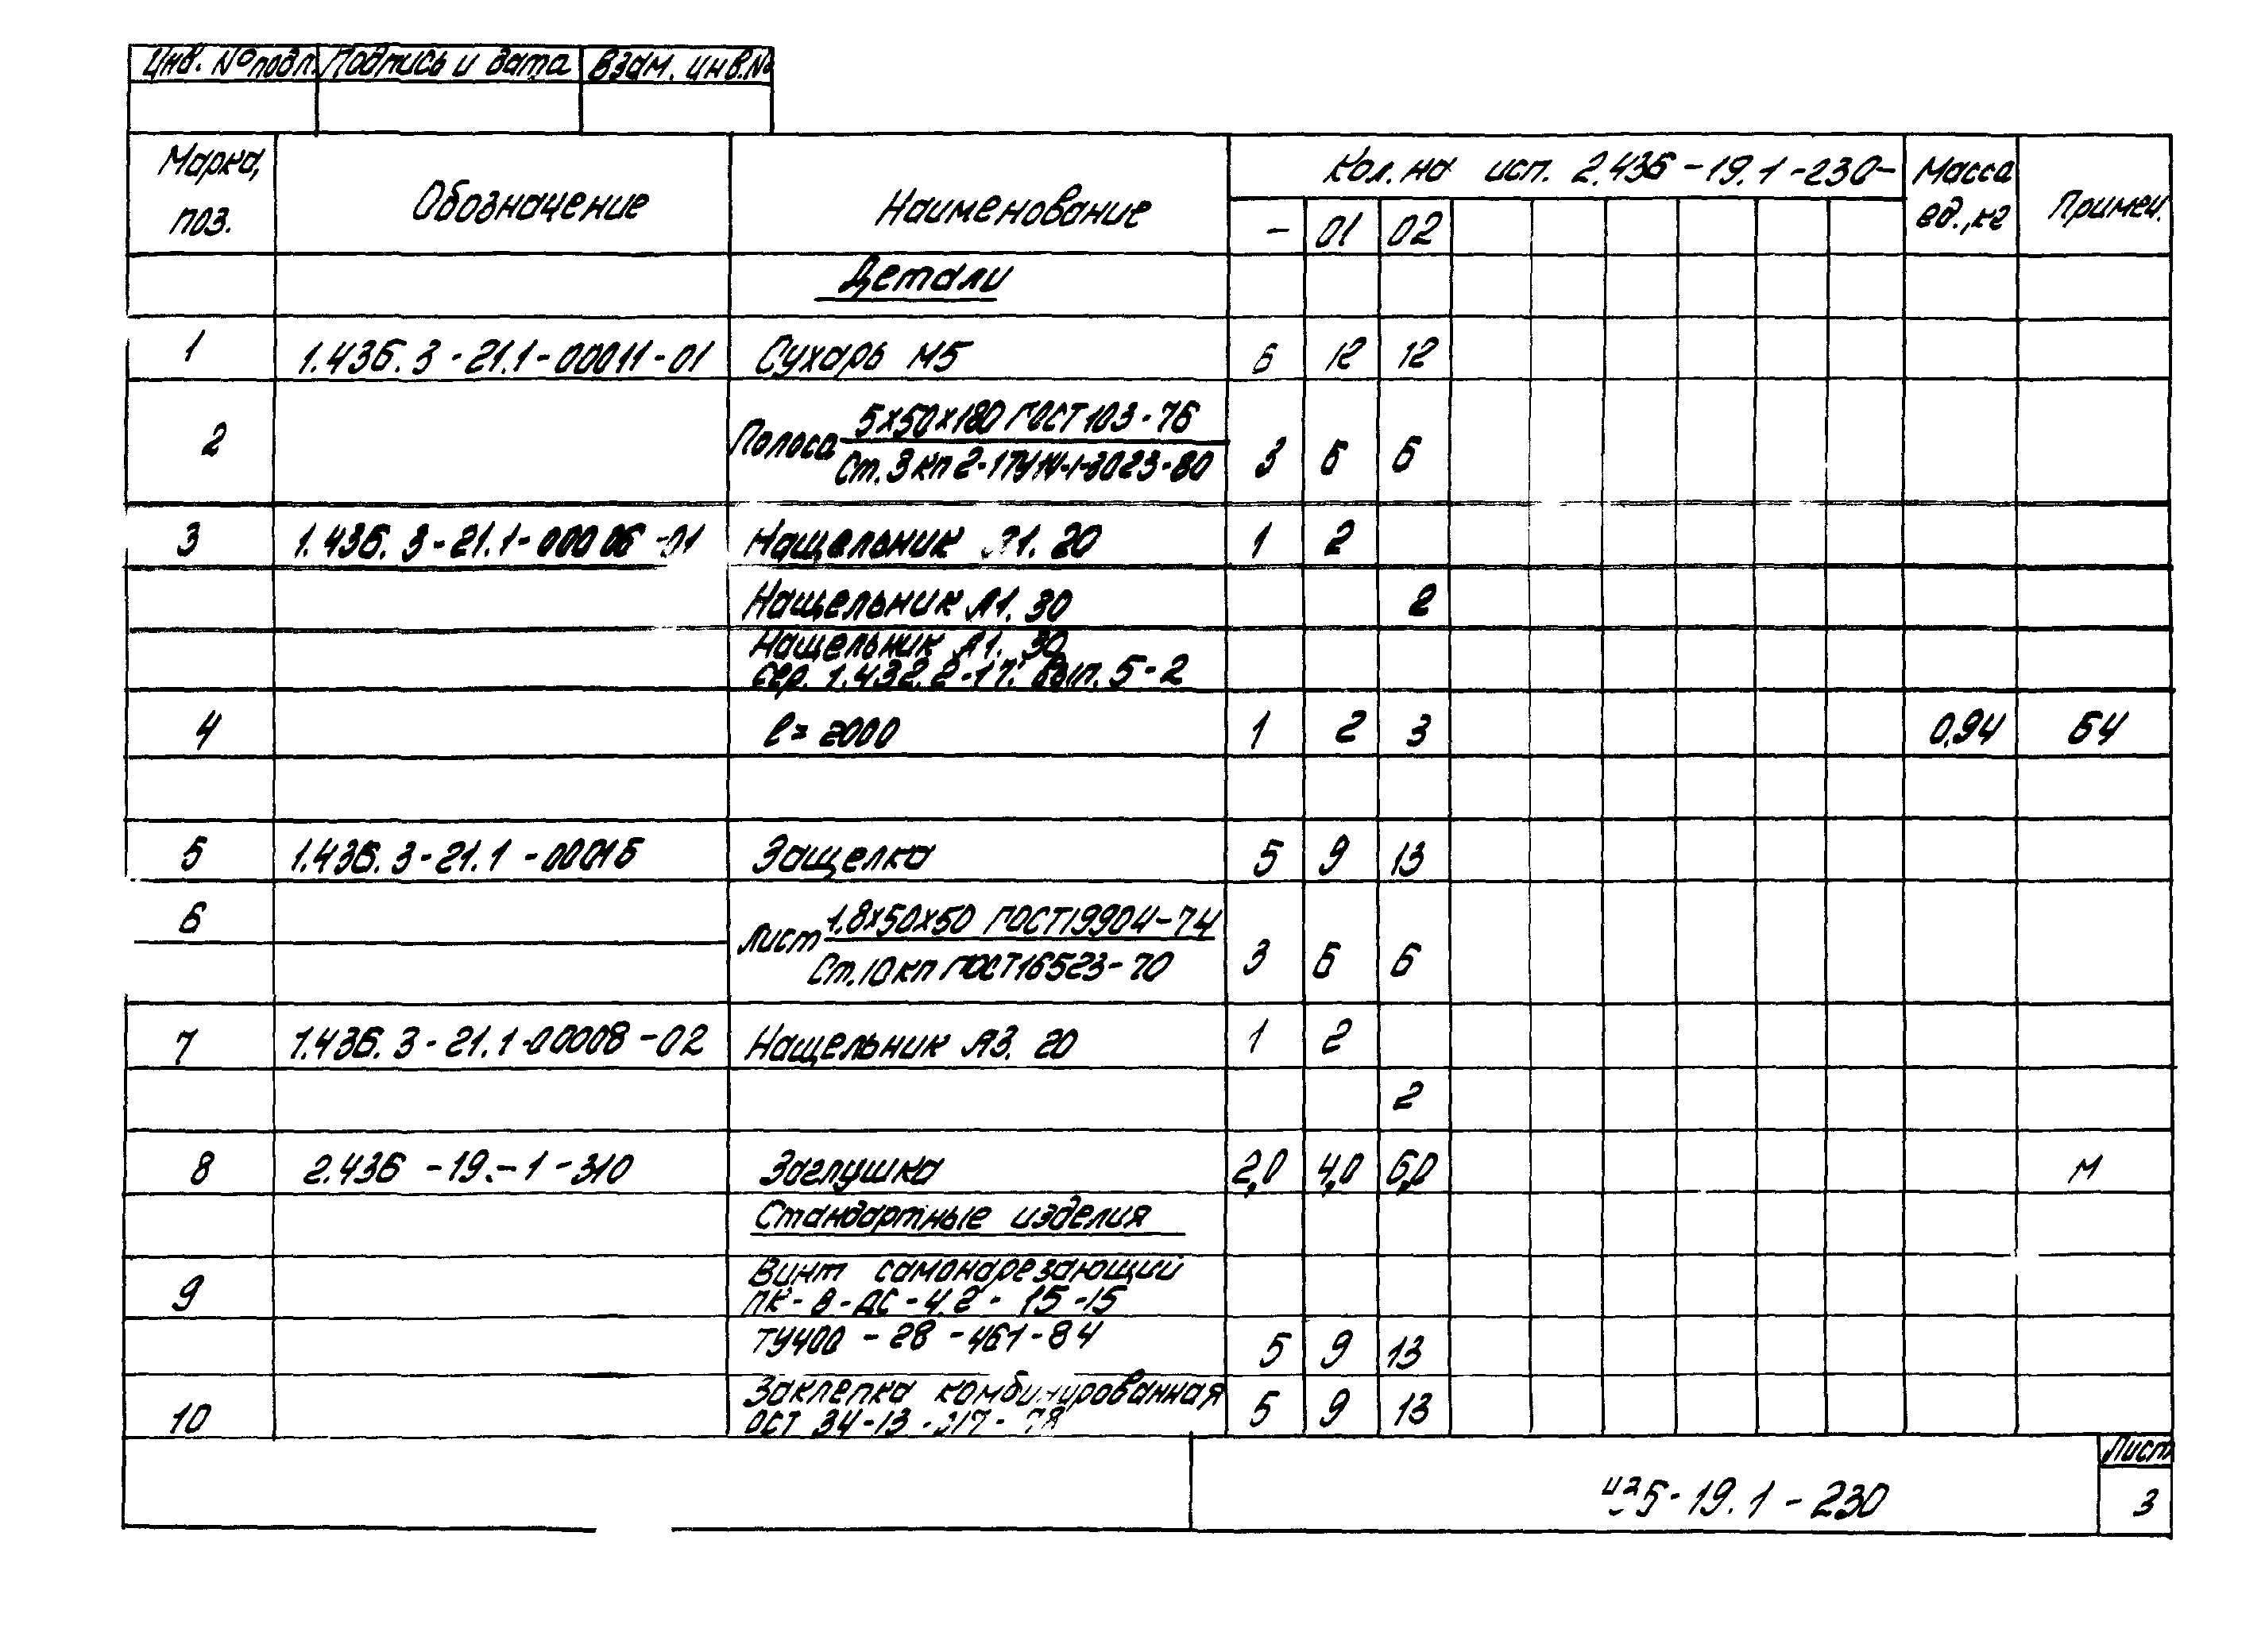 Инв. № подл. Подпись и дата Взам. инв. №
Марка, поз. Обозначение Наименование Кол. на исп. 2.436-19.1-230- Масса ед., кг Примеч.
- 01 02
Детали
1 1.436.3-21.1-00011-01 Сухарь М5 6 12 12
2 Полоса 5х50х180 ГОСТ 103-76 3 6 6
Ст. 3 кп 2-1 ТУ14-1-3023-80
3 1.436.3-21.1-00006-01 Нащельник Л1. 20 1 2
Нащельник Л1. 30 2
Нащельник Л1. 30
сер. 1.432.2-17. Вып. 5-2
4 ℓ= 2000 1 2 3 0,94 БЧ
5 1.436.3-21.1-00016 Защелка 5 9 13
6 Лист 1,8х50х50 ГОСТ19904-74 3 6 6
Ст. 10 кп ГОСТ16523-70
7 1.436.3-21.1-00008-02 Нащельник Л3. 20 1 2
2
8 2.436-19.-1-310 Заглушка 2,0 4,0 6,0 М
Стандартные изделия
9 Винт самонарезающий
ПК-В-ДС-4,2-15-15
ТУ400-28-461-84 5 9 13
10 Заклепка комбинированная 5 9 13
ОСТ 34-13-017-78
19.1-230
Лист
3